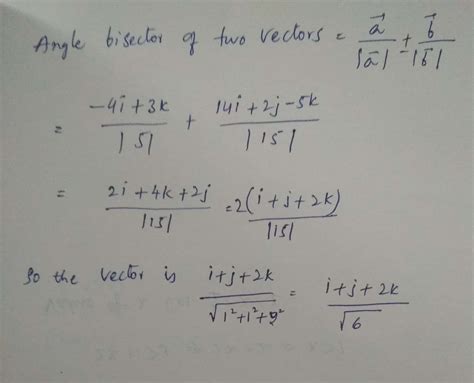 Angle bisector of two vectors = a⃗/|a⃗| ± b⃗/|b⃗|
= (-4i + 3k)/|5| + (14i + 2j - 5k)/|15|
= (2i + 4k + 2j)/|15| = 2(i + j + 2k)/|15|
So the vector is (i + j + 2k)/√(1² + 1² + 2²) = (i + j + 2k)/√6